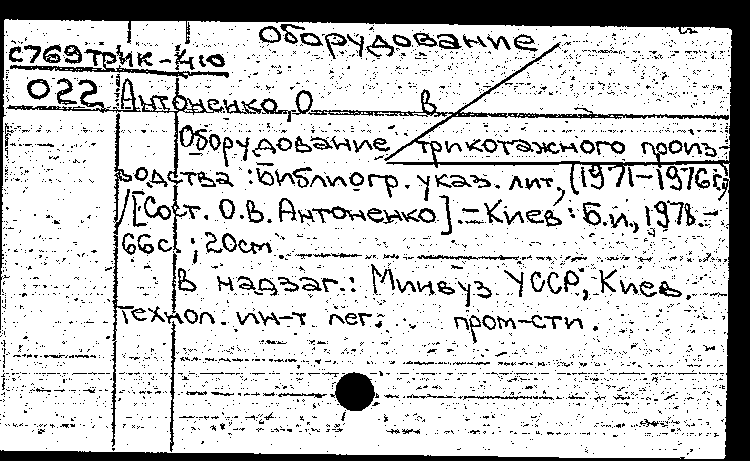 Оборудование
С769трик-4ю
022 Антоненко, О В
Оборудование трикотажного произ-
водства : Библиогр. указ. лит., (1971-1976г.)
/[Сост. О.В. Антоненко]. - Киев : Б.и., 1978. -
66с. ; 20см.
В надзаг.: Минвуз УССР, Киев.
технол. ин-т лег. пром-сти.